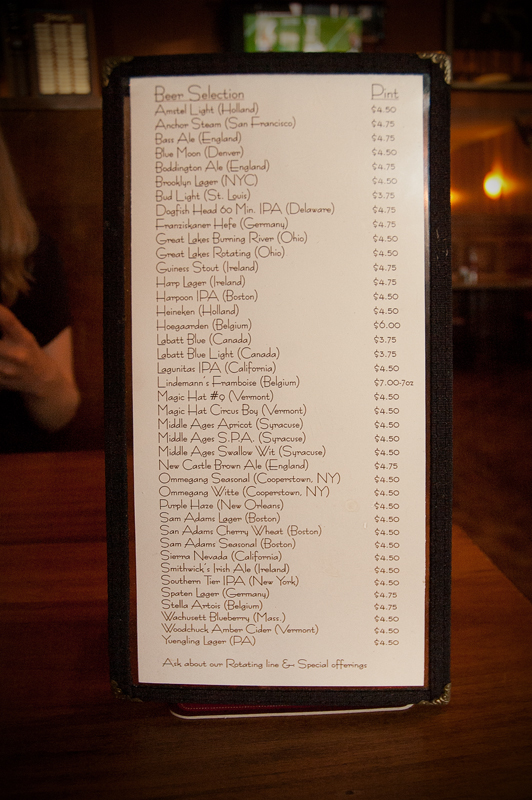 Beer Selection Pint
Amstel Light (Holland) $4.50
Anchor Steam (San Francisco) $4.75
Bass Ale (England) $4.75
Blue Moon (Denver) $4.50
Boddington Ale (England) $4.75
Brooklyn Lager (NYC) $4.50
Bud Light (St. Louis) $3.75
Dogfish Head 60 Min. IPA (Delaware) $4.75
Franziskaner Hefe (Germany) $4.75
Great Lakes Burning River (Ohio) $4.50
Great Lakes Rotating (Ohio) $4.50
Guiness Stout (Ireland) $4.75
Harp Lager (Ireland) $4.75
Harpoon IPA (Boston) $4.50
Heineken (Holland) $4.50
Hoegaarden (Belgium) $6.00
Labatt Blue (Canada) $3.75
Labatt Blue Light (Canada) $3.75
Lagunitas IPA (California) $4.50
Lindemann's Framboise (Belgium) $7.00-7oz
Magic Hat #9 (Vermont) $4.50
Magic Hat Circus Boy (Vermont) $4.50
Middle Ages Apricot (Syracuse) $4.50
Middle Ages S.P.A. (Syracuse) $4.50
Middle Ages Swallow Wit (Syracuse) $4.50
New Castle Brown Ale (England) $4.75
Ommegang Seasonal (Cooperstown, NY) $4.50
Ommegang Witte (Cooperstown, NY) $4.50
Purple Haze (New Orleans) $4.50
Sam Adams Lager (Boston) $4.50
San Adams Cherry Wheat (Boston) $4.50
Sam Adams Seasonal (Boston) $4.50
Sierra Nevada (California) $4.50
Smithwick's Irish Ale (Ireland) $4.50
Southern Tier IPA (New York) $4.50
Spaten Lager (Germany) $4.75
Stella Artois (Belgium) $4.75
Wachusett Blueberry (Mass.) $4.50
Woodchuck Amber Cider (Vermont) $4.50
Yuengling Lager (PA) $4.50
Ask about our Rotating line & Special offerings